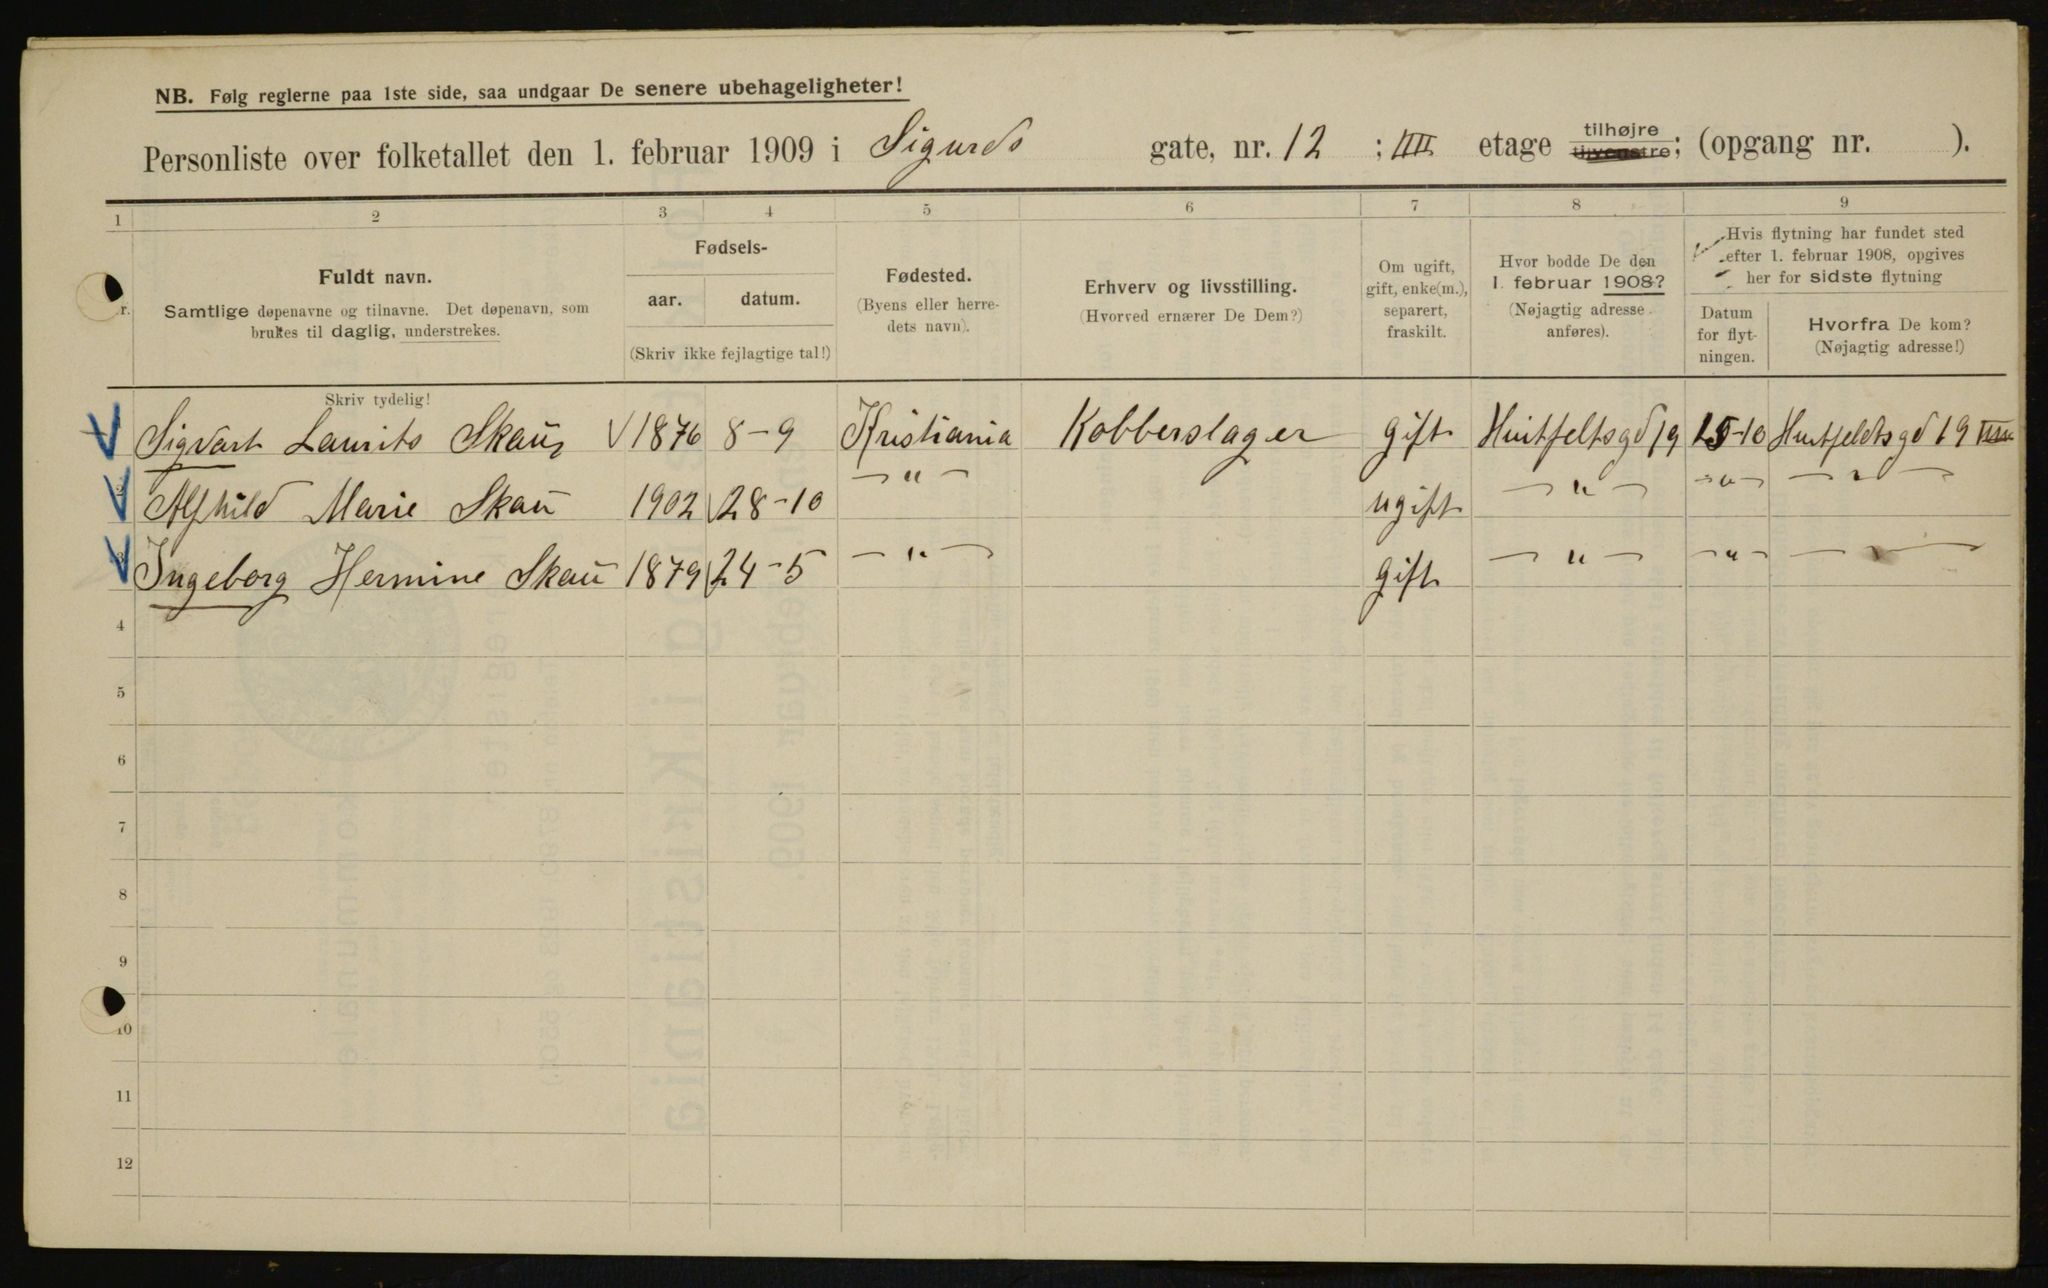 NB. Følg reglerne paa 1ste side, saa undgaar De senere ubehageligheter!
Personliste over folketallet den 1. februar 1909 i Sigurds gate, nr. 12 ; IIII etage tilhøjre tilvenstre; (opgang nr. ).
1 2 3 4 5 6 7 8 9
Fuldt navn.
Samtlige døpenavne og tilnavne. Det døpenavn, som
brukes til daglig, understrekes.
Fødsels-
aar. datum.
(Skriv ikke fejlagtige tal!)
Fødested.
(Byens eller herre-
dets navn).
Erhverv og livsstilling.
(Hvorved ernærer De Dem?)
Om ugift,
gift, enke(m.),
separert,
fraskilt.
Hvor bodde De den
1. februar 1908?
(Nøjagtig adresse
anføres).
Hvis flytning har fundet sted
efter 1. februar 1908, opgives
her for sidste flytning
Datum
for flyt-
ningen.
Hvorfra De kom?
(Nøjagtig adresse!)
Skriv tydelig!
Sigvart Laurits Skau 1876 8-9 Kristiania Kobberslager gift Huitfeltsgd 19 15-10 Huitfeldtsgd 19 IIII
Alfhild Marie Skau 1902 28-10 -"- ugift -"- -"- -"-
Ingeborg Hermine Skau 1879 24-5 -"- gift -"- -"- -"-
4
5
6
7
8
9
10
11
12